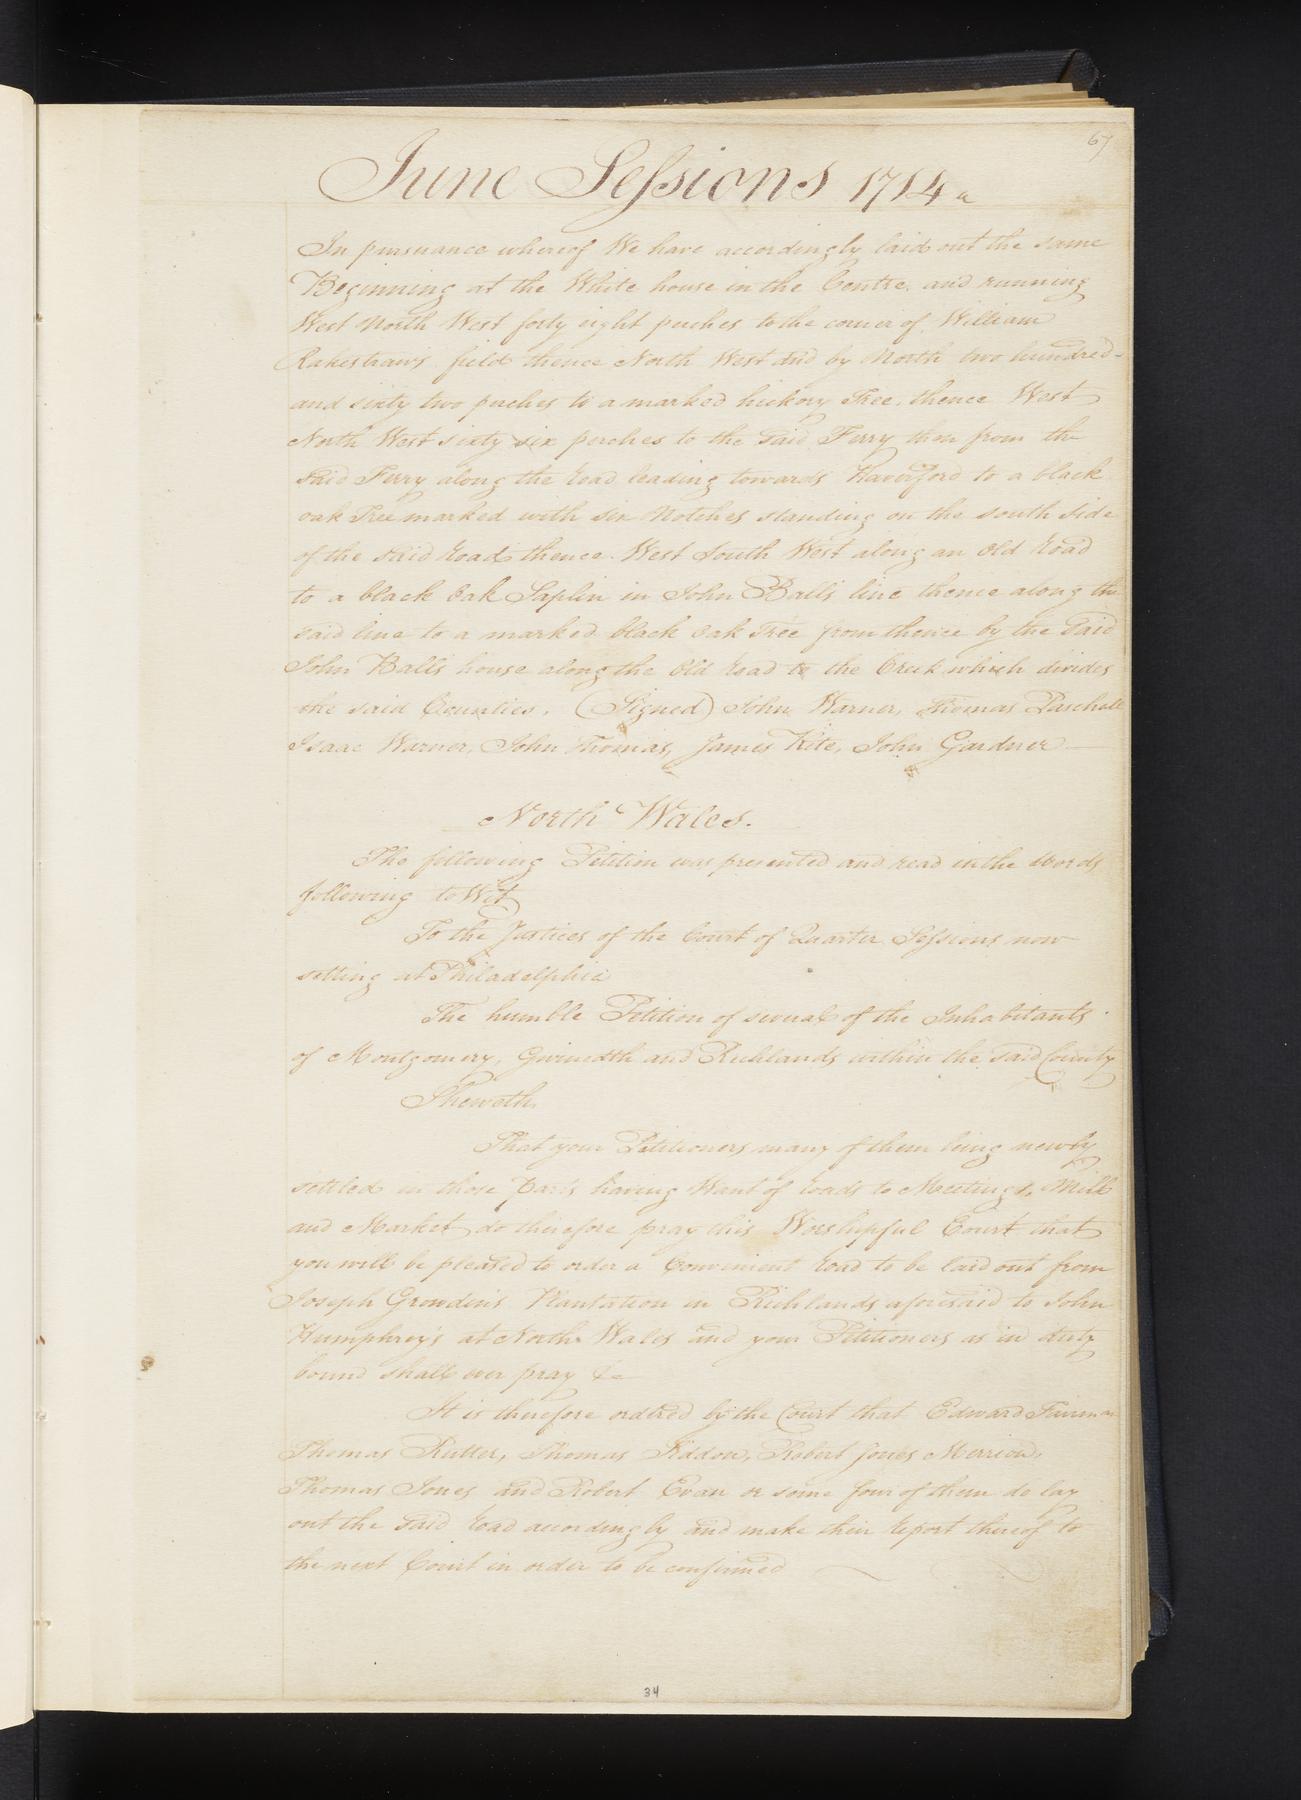 67
June Sessions 1714
In pursuance whereof We have accordingly laid out the same
Beginning at the White house in the Centre, and running
West North West forty eight perches to the corner of William
Rakestraws field thence North West and by North two hundred
and sixty two perches to a marked hickory Tree, thence West
North West sixty six perches to the said Ferry then from the
said Ferry along the road leading towards Haverford to a black
oak Tree marked with six Notches standing on the south side
of the said road thence West South West along an old road
to a black Oak Saplin in John Balls line thence along the
said line to a marked black Oak Tree from thence by the said
John Balls house along the Old road to the Creek which divides
the said Counties. (Signed) John Warner, Thomas Paschall
Isaac Warner, John Thomas, James Kite, John Gardner
North Wales.
The following Petition was presented and read in the Words
following to Wit
To the Justices of the Court of Quarter Sessions now
setting at Philadelphia
The humble Petition of several of the Inhabitants
of Montgomery, Gwinedth and Richlands within the said County
Sheweth.
That your Petitioners many of them being newly
settled in those Parts having Want of roads to Meetings, Mill
and Market do therefore pray this Worshipful Court that
you will be pleased to order a Convenient road to be laid out from
Joseph Growdin's Plantation in Richlands aforesaid to John
Humphrey's at North Wales and your Petitioners as in duty
bound shall ever pray &c
It is therefore ordered by the Court that Edward
Thomas Rutter, Thomas Robert Jones Merrion,
Thomas Jones and Robert Evan or some four of them do lay
out the said road accordingly and make their report thereof to
the next Court in order to be confirmed
34